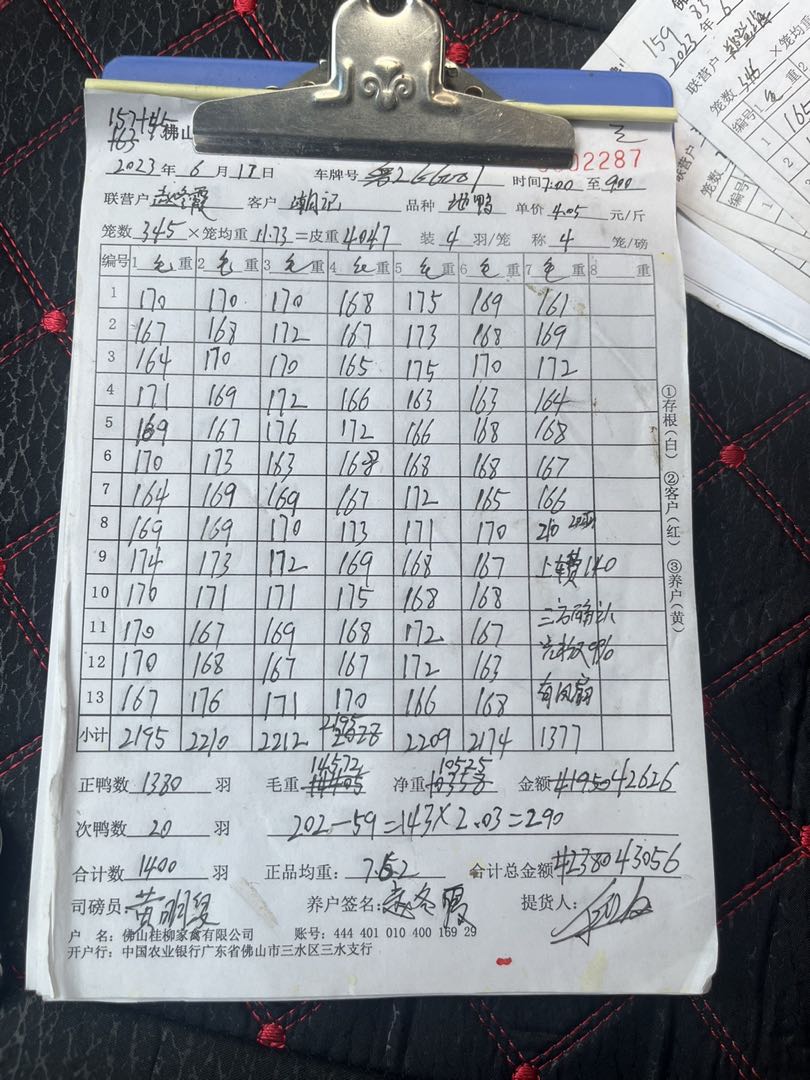 157+45
163
佛山
2287
2023年 6 月 17 日 车牌号 时间7:00 至 900
联营户 赵冬霞 客户 潮记 品种 地鸭 单价 4.05 元/斤
笼数 345 ×笼均重 11.73 =皮重 4047 装 4 羽/笼 称 4 笼/磅
编号 1 毛 重 2 毛 重 3 毛 重 4 毛 重 5 毛 重 6 毛 重 7 毛 重 8 重
1 170 170 170 168 175 169 161
2 167 168 172 167 173 168 169
3 164 170 170 165 175 170 172
4 171 169 172 166 163 163 164
5 169 167 176 172 166 168 168
6 170 173 163 168 168 168 167
7 164 169 169 167 172 165 166
8 169 169 170 173 171 170 210
9 174 173 172 169 168 167 上车费140
10 170 171 171 175 168 168
11 170 167 169 168 172 167 三方确认
12 170 168 167 167 172 163
13 167 176 171 170 166 168 有风扇
小计 2195 2210 2212 2195 2209 2174 1377
正鸭数 1380 羽 毛重 14572 净重 10525 金额 42626
次鸭数 20 羽 202-59=143×2.03=290
合计数 1400 羽 正品均重: 7.62 合计总金额 43056
司磅员: 养户签名: 赵冬霞 提货人:
户 名: 佛山桂柳家禽有限公司 账号: 444 401 010 400 169 29
开户行: 中国农业银行广东省佛山市三水区三水支行
①存根(白) ②客户(红) ③养户(黄)
159 83
2023年 6
联营户
笼数 346 ×笼均重
编号 1 毛 重 2
1 165